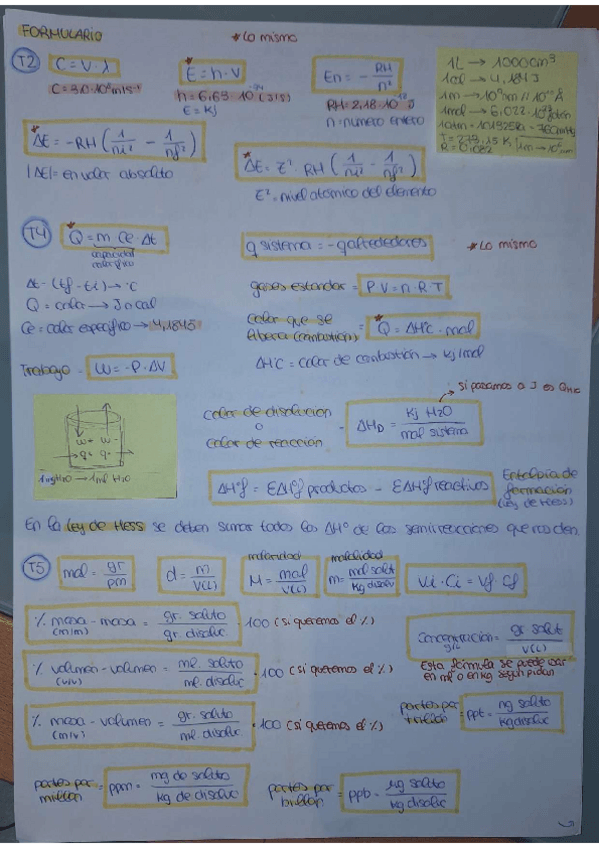 FORMULARIO
* Lo mismo
T2 C = V · λ
C = 3.0 · 10⁸ m/s⁻¹
* E = h · V
h = 6,63 · 10⁻³⁴ (J/s)
E = Kj
En = - RH / n²
RH = 2,18 · 10⁻¹⁸ J
n = numero entero
1L → 1000 cm³
1cal → 4,184 J
1mol → 6,022 · 10²³
T = 273,15 K
R = 0,082
* ΔE = -RH (1/ni² - 1/nf²)
|ΔE| = en valor absoluto
* ΔE = Z² · RH (1/ni² - 1/nf²)
Z² = nivel atomico del elemento
T4 * Q = m Ce Δt
capacidad
calorifica
q sistema = - q alrededores
* Lo mismo
Δt = (tf - ti) → °C
Q = calor → J n cal
Ce = calor especifico → 4,184 J
gases estandar = P V = n · R · T
calor que se
libera (combustion) = * Q = ΔH°C · mol
ΔH°C = calor de combustión → kj/mol
Trabajo = W = -P · ΔV
si pasamos a J es
W+ W-
q+ q-
1mg H2O → 1ml H2O
calor de disolucion
o
calor de reacción = ΔHD = Kj H2O / mol sistema
ΔH°f = ΣΔH°f productos - ΣΔH°f reactivos
Entalpia de
formación
(Ley de Hess)
En la Ley de Hess se deben sumar todos los ΔH° de las semirreacciones que nos den.
T5 mol = gr / pm
d = m / V(L)
molaridad
M = mol / V(L)
molalidad
m = mol solut / Kg disolv
Vi · Ci = Vf · Cf
% masa - masa = gr. soluto / gr. disoluc. · 100 (si queremos el %)
(m/m)
Concentración = gr solut / V(L)
g/L
% volumen - volumen = ml. soluto / ml. disoluc · 100 (si queremos el %)
(v/v)
Esta fórmula se puede usar
en ml o en kg según pidan
% masa - volumen = gr. soluto / ml disoluc · 100 (si queremos el %)
(m/v)
partes por
trillón = ppt = ng soluto / kg disoluc
partes por
millón = ppm = mg de soluto / kg de disoluc
partes por
billón = ppb = µg soluto / kg disoluc